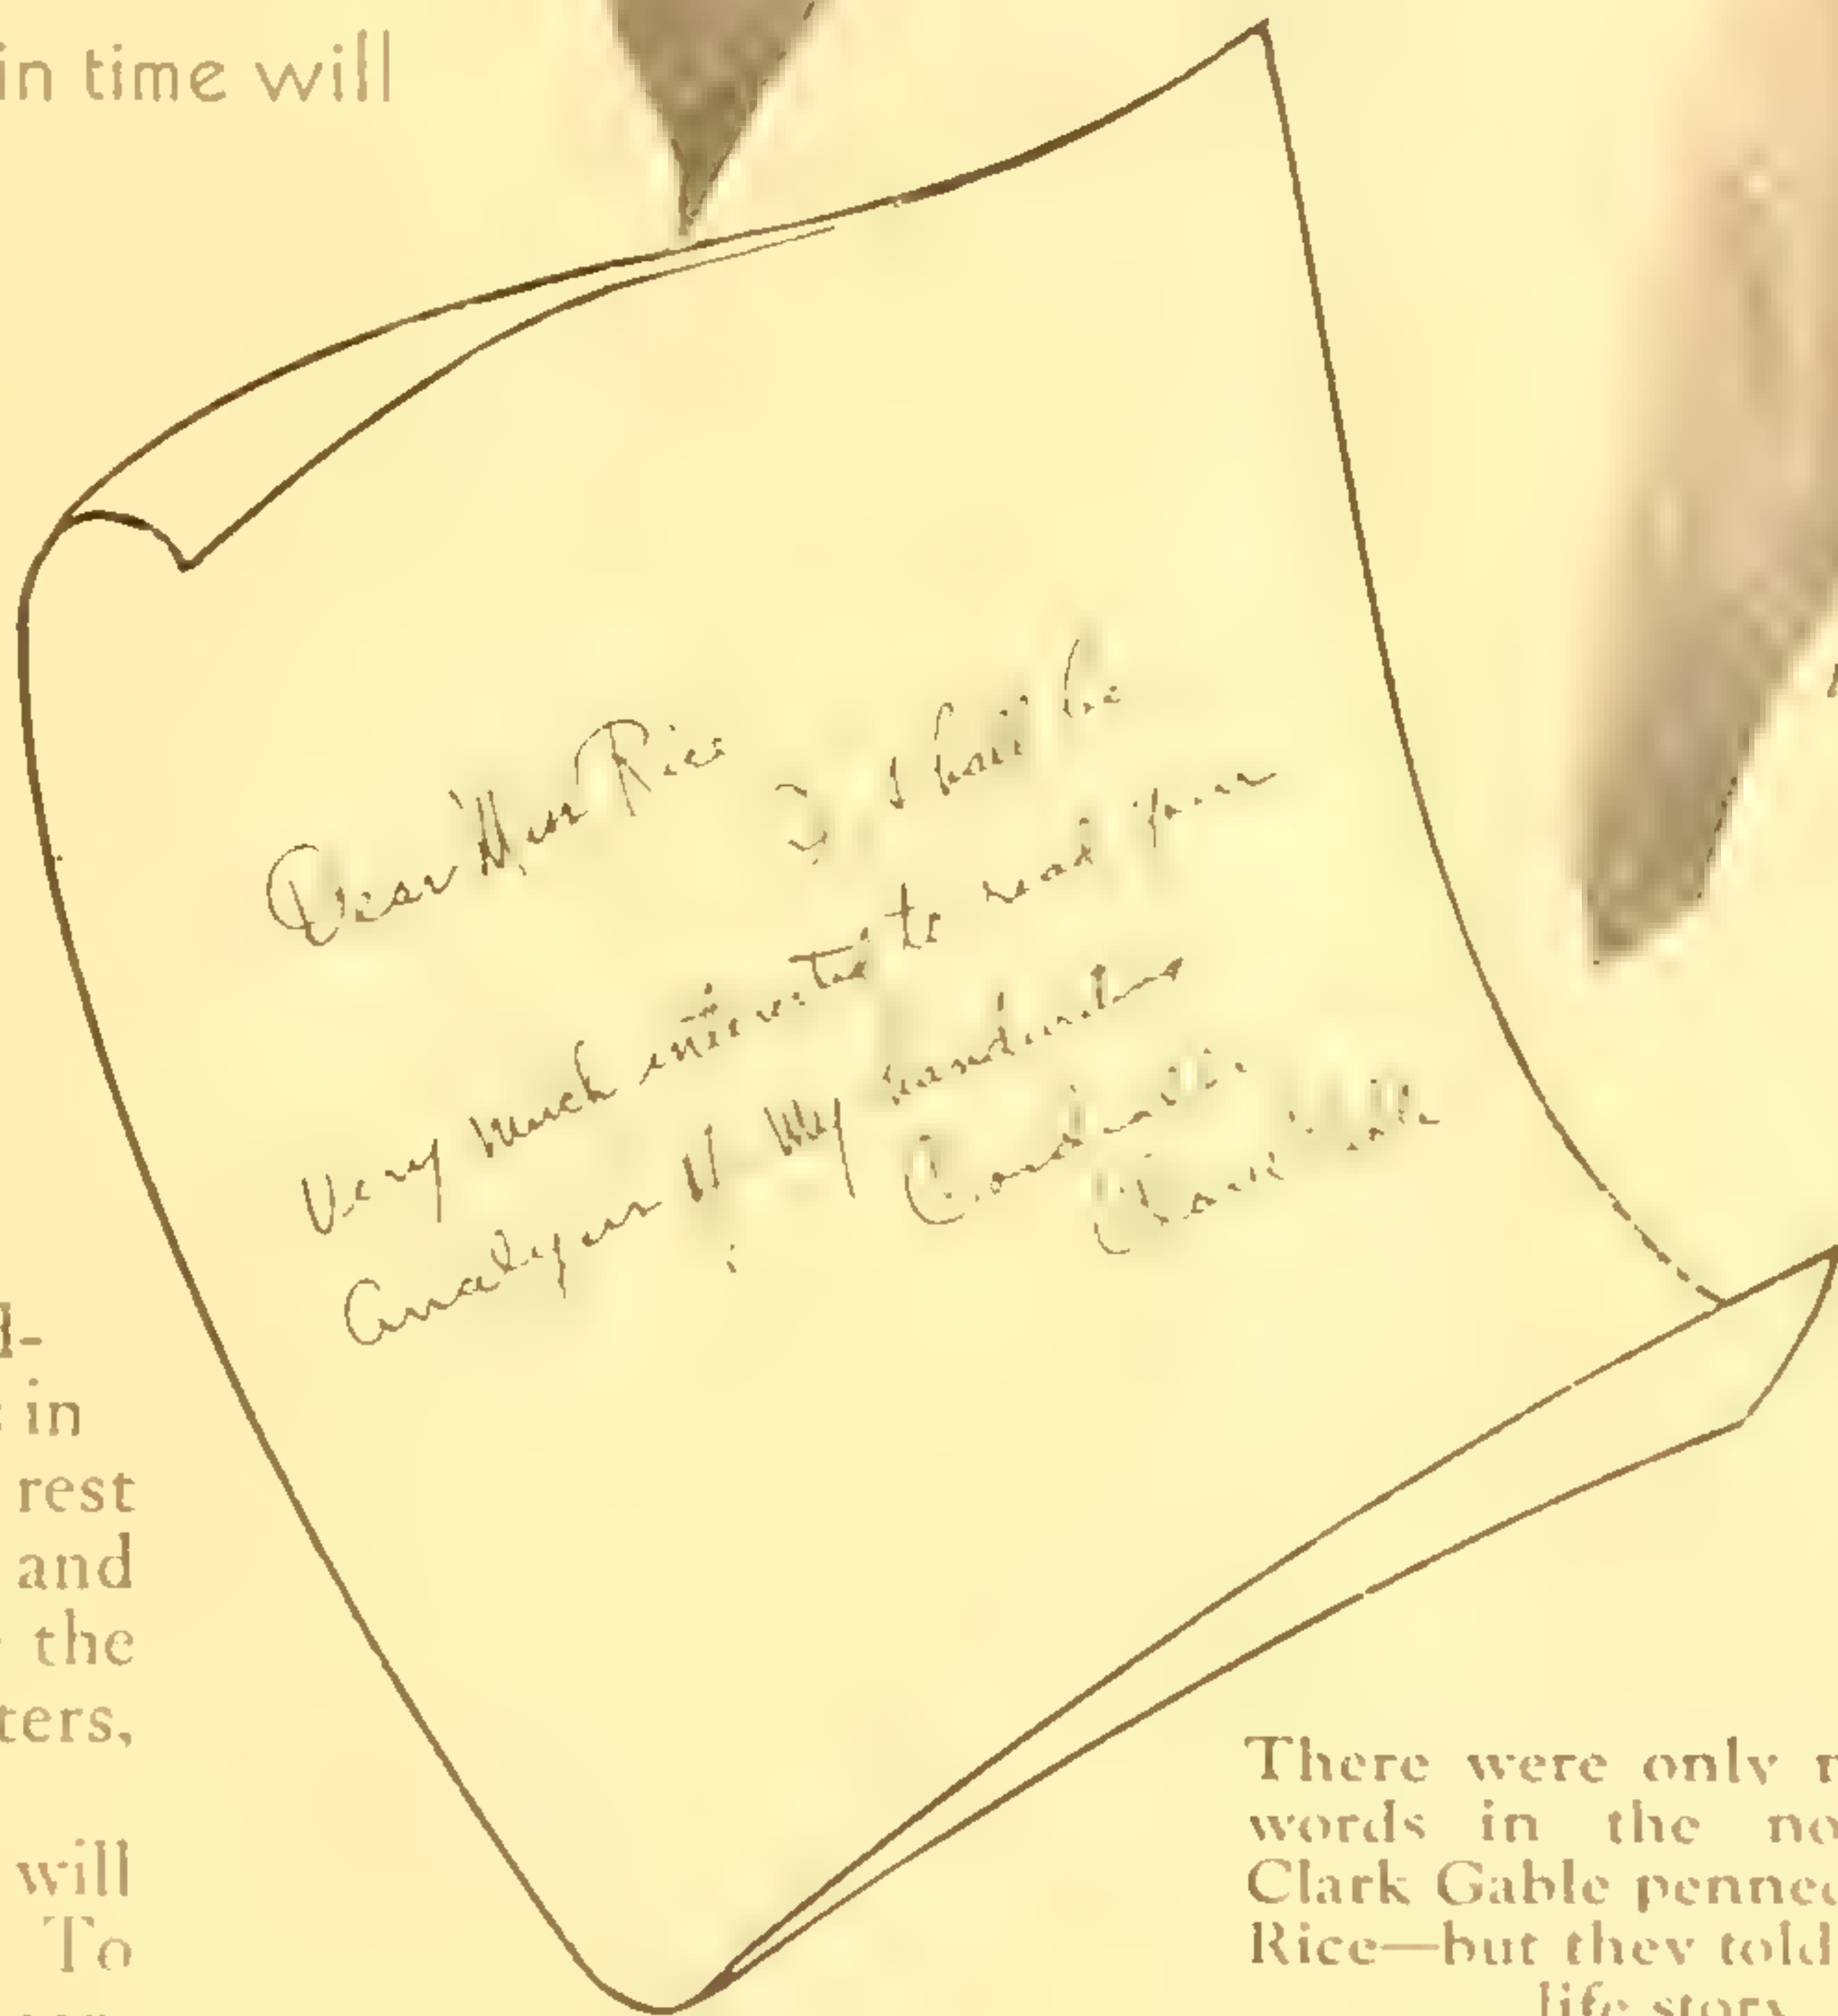 in time will
Dear Miss Rice I shall be
very much interested to read your
Analysis of My handwriting
Cordially
Clark Gable
d-
in
rest
and
the
ters,
will
To
There were only
words in the no
Clark Gable penned
Rice—but they told
life story